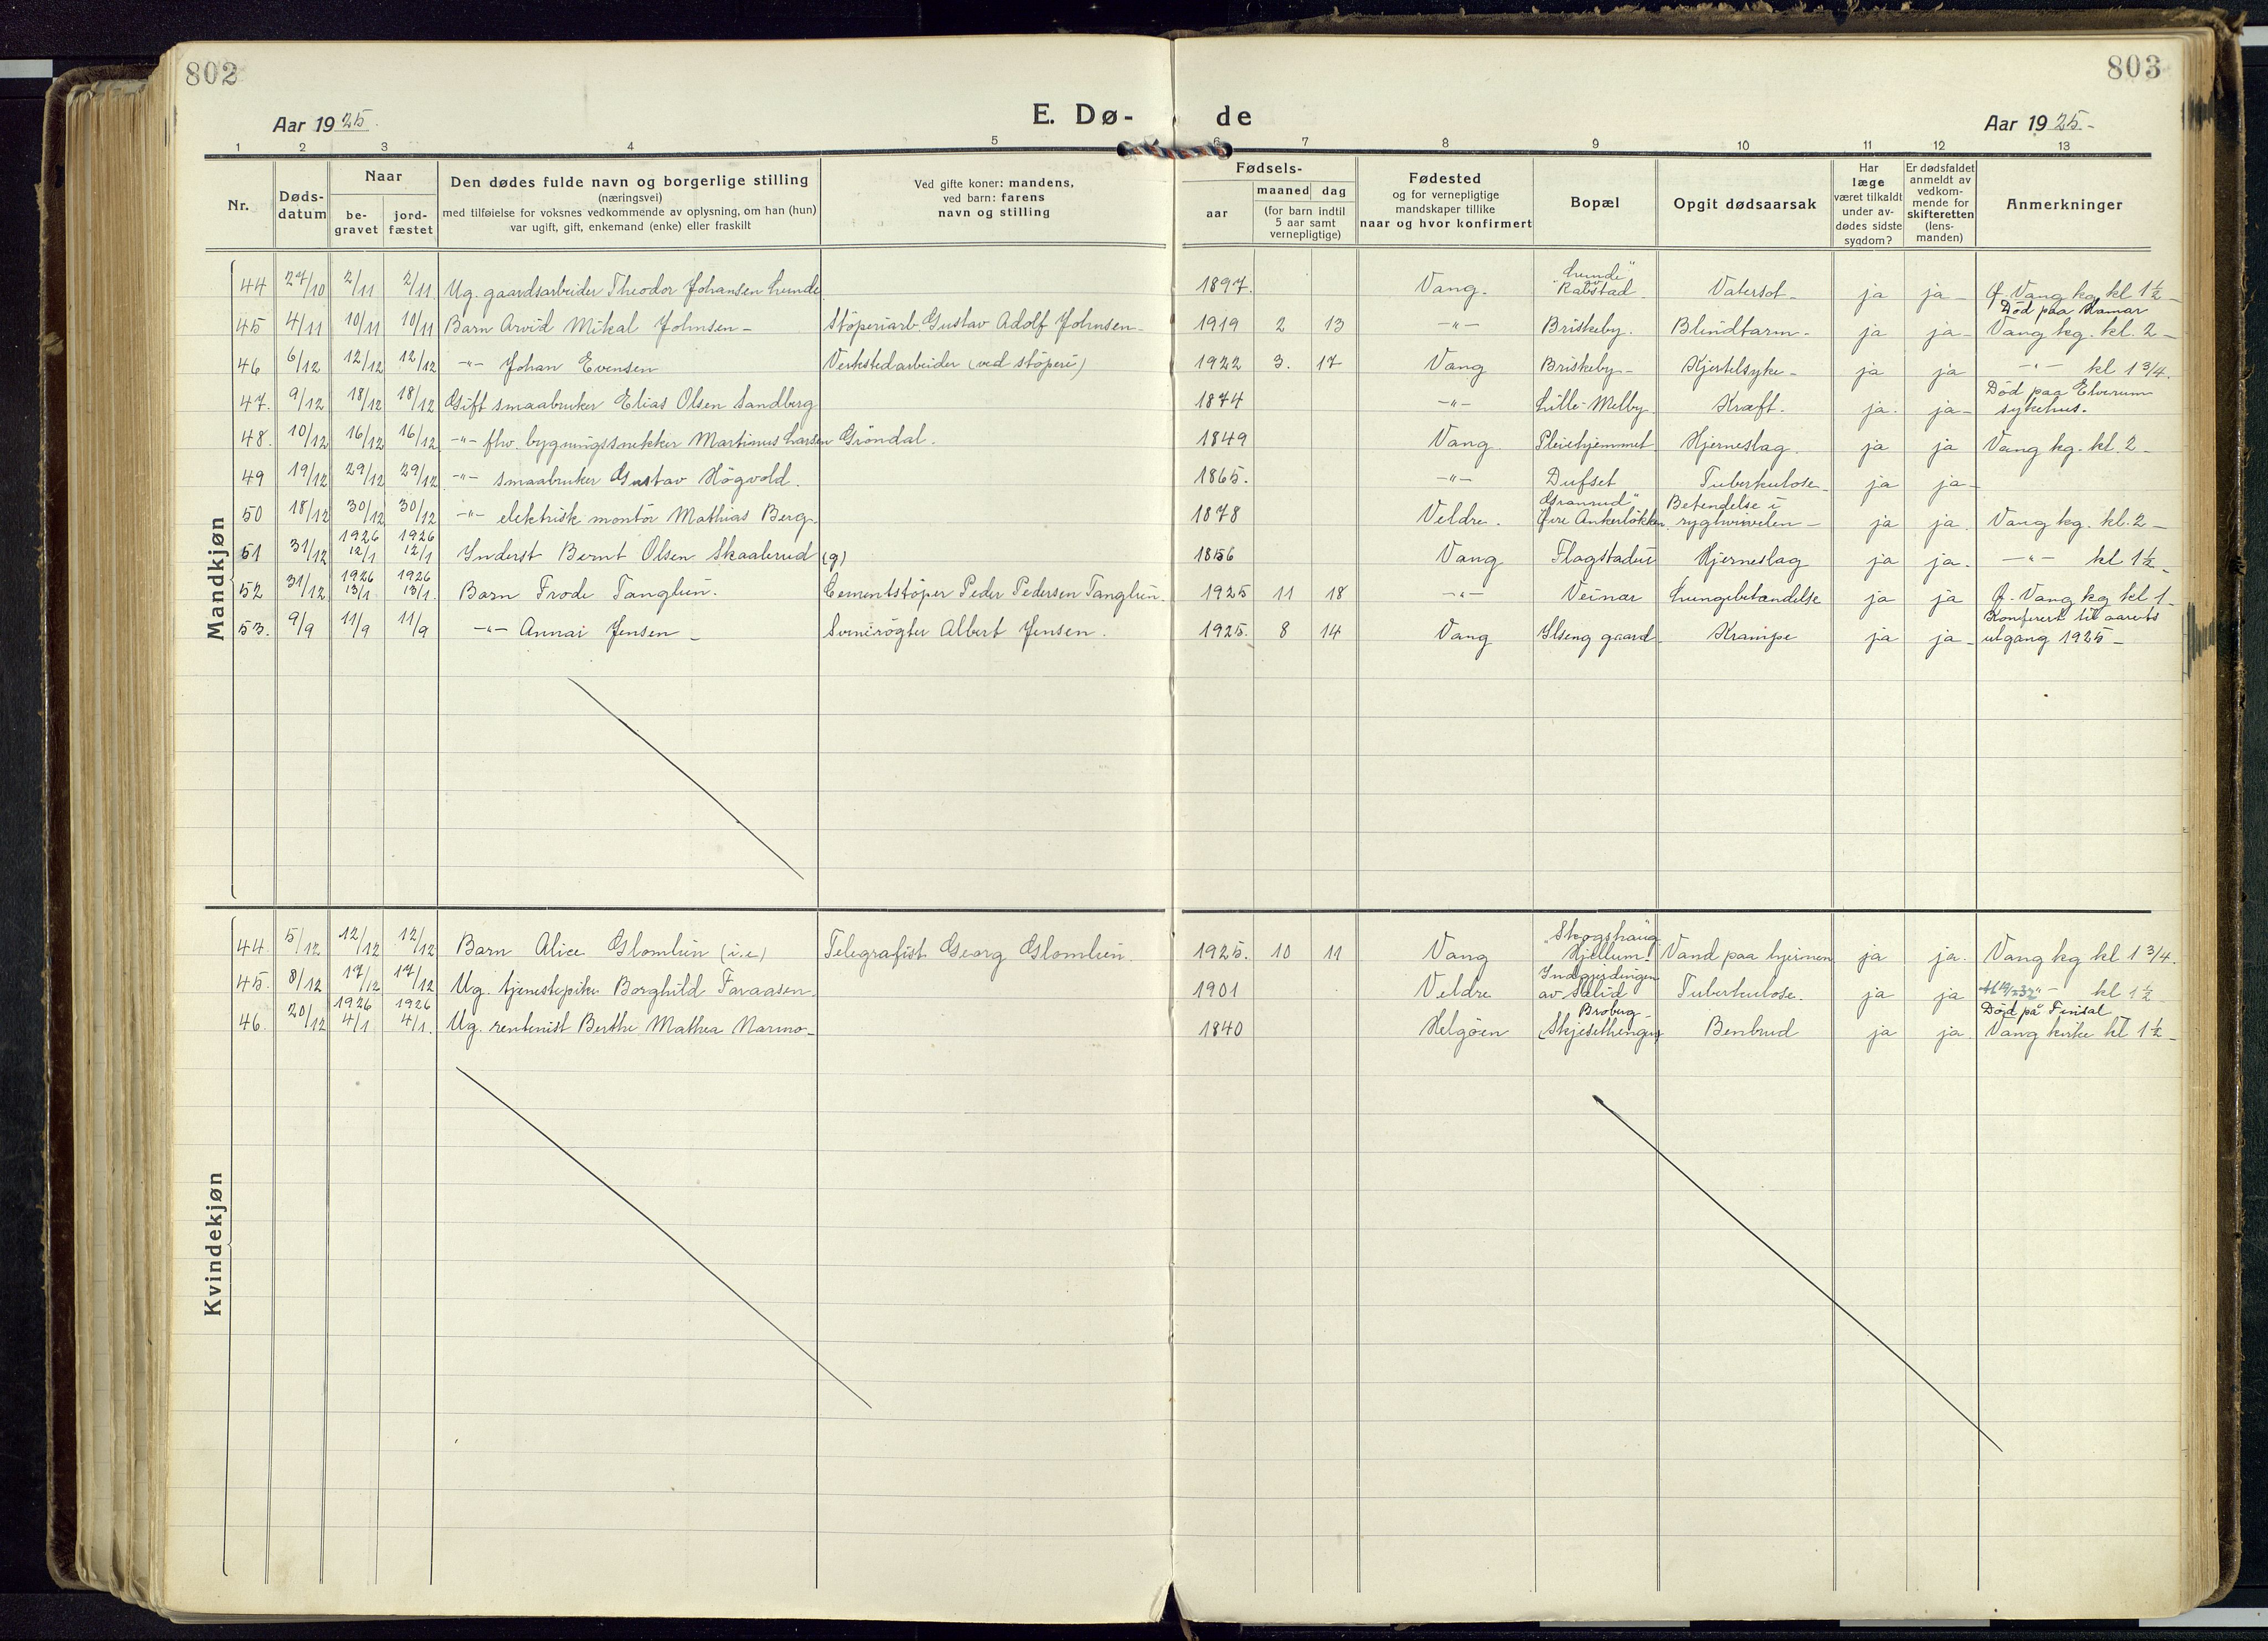 802
803
Aar 1925.
E. Dø-
de
Aar 1925-
1 2 3 4 5 6 7 8 9 10 11 12 13
Nr.
Døds-
datum
Naar
be-
gravet
jord-
fæstet
Den dødes fulde navn og borgerlige stilling
(næringsvei)
med tilføielse for voksnes vedkommende av oplysning, om han (hun)
var ugift, gift, enkemand (enke) eller fraskilt
Ved gifte koner: mandens,
ved barn: farens
navn og stilling
Fødsels-
aar
maaned dag
(for barn indtil
5 aar samt
vernepligtige)
Fødested
og for vernepligtige
mandskaper tillike
naar og hvor konfirmert
Bopæl
Opgit dødsaarsak
Har
læge
været tilkaldt
under av-
dødes sidste
sygdom?
Er dødsfaldet
anmeldt av
vedkom-
mende for
skifteretten
(lens-
manden)
Anmerkninger
Mandkjøn
44 27/10 2/11 2/11 Ug. gaardsarbeider Theodor Johansen Lunde 1897. Vang. Lunde" Rabstad Vatersot- ja ja- Vang kg kl 1½-
45 4/11 10/11 10/11 Barn Arvid Mikal Johnsen- Støperiarb. Gustav Adolf Johnsen- 1919 2 13 -"- Briskeby. Blindtarm- ja ja- Død paa Hamar
Vang kg. kl. 2-
46 6/12 12/12 12/12 -"- Johan Evensen Verkstedarbeider (ved støperi) 1922 3. 17 Vang Briskeby- Kjertelsyke- ja ja -"- kl 1¾.
47. 9/12 18/12 18/12 Gift smaabruker Elias Olsen Sandberg 1874 -"- Lille-Melby. Kræft. ja. ja- Død paa Elverum
sykehus.
48. 10/12 16/12 16/12 -"- fhv. bygningssnekker Martinus Larsen Grøndal. 1849 Vang. Pleiehjemmet Hjerneslag. ja ja Vang kg. kl. 2-
49 19/12 29/12 29/12 -"- smaabruker Gustav Høgvold. 1865. -"- Dufset Tuberkulose- ja ja-
50 18/12 30/12 30/12 -"- elektrisk montør Mathias Berg- 1878 Veldre. Granrud"
Øvre Ankerløkken Betendelse i
ryghvirvelen- ja ja. Vang kg. kl. 2-
51 31/12 1926 12/1 1926 12/1 Inderst Bernt Olsen Skaalerud (g) 1856 Vang Flagstadeie Hjerneslag ja ja. -"- kl 1½-
52 31/12 1926 13/1. 1926 13/1. Barn Frode Tanglien. Cementstøper Peder Pedersen Tanglien. 1925 11 18 -"- Veinar Lungebetændelse ja ja Vang kg kl 1-
53. 9/9 11/9 11/9 -"- Annar Jensen- Svinerøgter Albert Jensen. 1925. 8 14 Vang Ilseng gaard Krampe ja ja- Konferert til aarets
utgang 1925-
Kvindekjøn
44. 5/12 12/12 12/12 Barn Alice Glomlien (i.e) Telegrafist Georg Glomlien. 1925. 10 11 Vang "Skogshaug
Hjellum" Vand paa hjernen ja ja. Vang kg kl 1¾.
45. 8/12 17/12 17/12 Ug. tjenestepike Borghild Faraasen. 1901 Veldre Indgjerdingen
av Sælid Tuberkulose. ja ja -"- kl 1½
46. 20/12 1926 4/1 1926 4/1. Ug. rentenist Berthe Mathea Narmo- 1840 Helgøen Broberg-
(Skjesethengen) Benbrud ja ja. Død på Finsal
Vang kirke kl 1½-